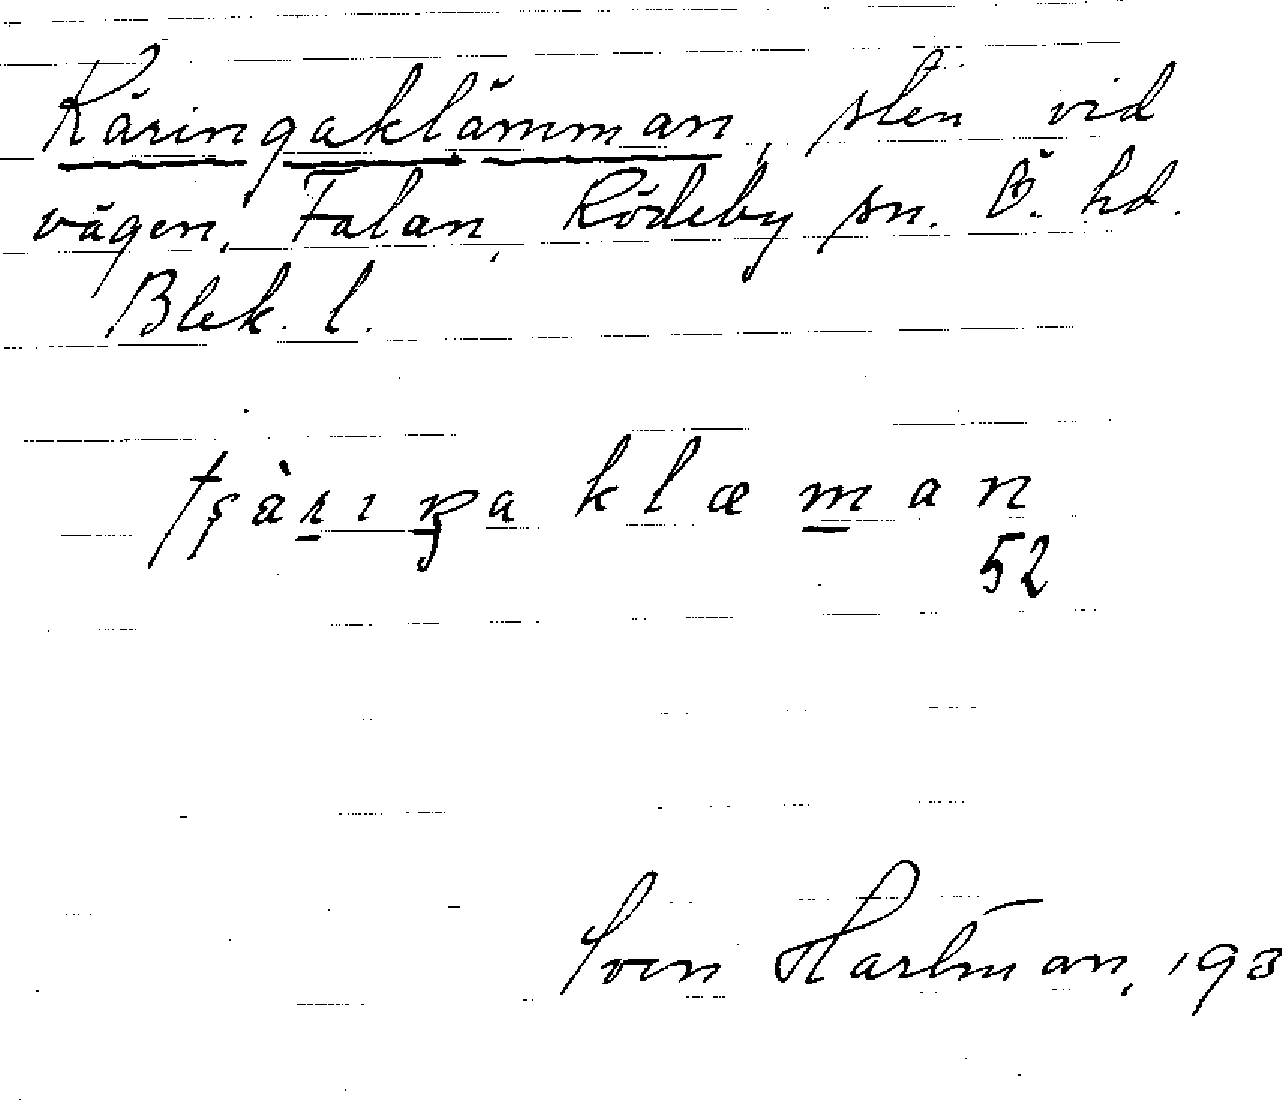 Käringaklämman, sten vid
vägen, Falan, Rödeby sn. Ö. hd.
Blek. l.
tʂàrıŋa klæman
52
Sven Hartman, 193